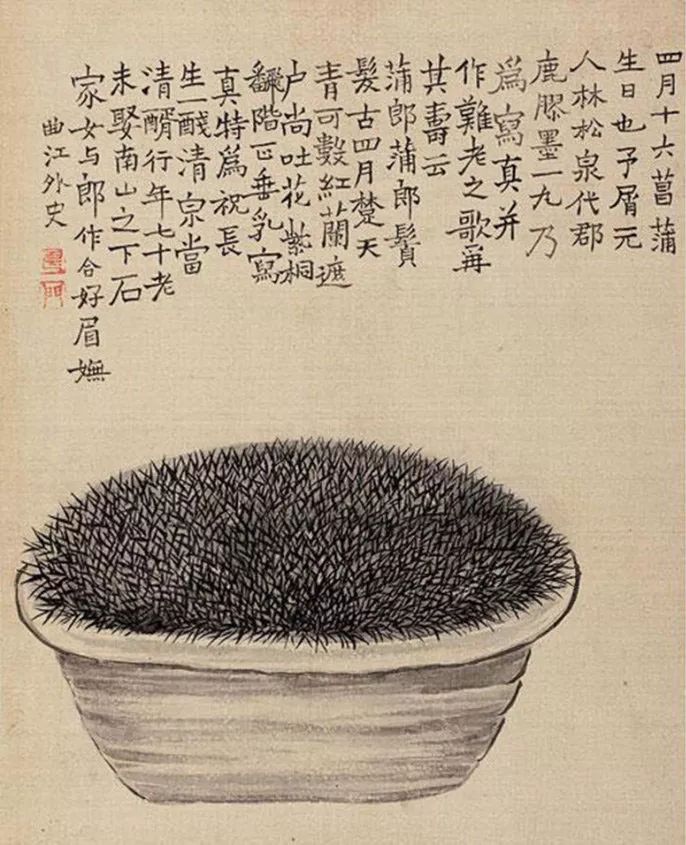 四月十六菖蒲
生日也予屑元
人林松泉代郡
鹿膠墨一丸乃
爲寫真并
作難老之歌爯
其壽云
蒲郎蒲郎鬢
髮古四月楚天
青可數紅蘭遮
户尚吐花紫桐
翻階正垂乳寫
真特爲祝長
生一醆清泉當
清醑行年七十老
未娶南山之下石
家女与郎作合好眉嫵
曲江外史
壽門